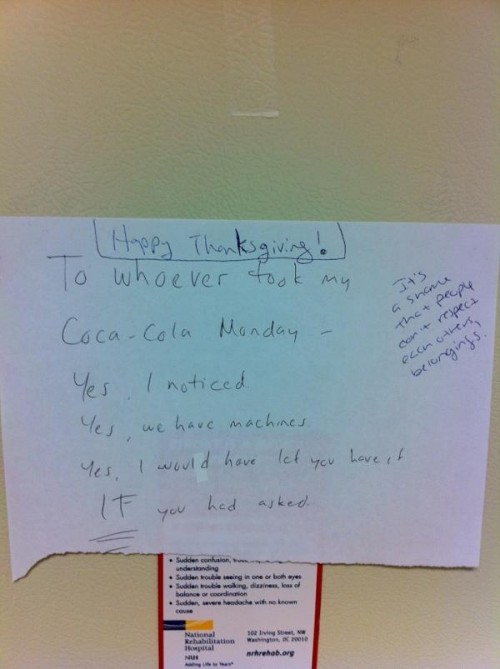 Happy Thanksgiving!
To whoever took my
Coca-Cola Monday -
Yes, I noticed
Yes, we have machines
Yes, I would have let you have it
IF you had asked.
It's
a shame
that people
don't respect
each others,
belongings.
• Sudden confusion,
understanding
• Sudden trouble seeing in one or both eyes
• Sudden trouble walking, dizziness, loss of
balance or coordination
• Sudden, severe headache with no known
cause
National
Rehabilitation
Hospital
Adding Life to Years
102 Irving Street, NW
Washington, DC 20010
nrhrehab.org